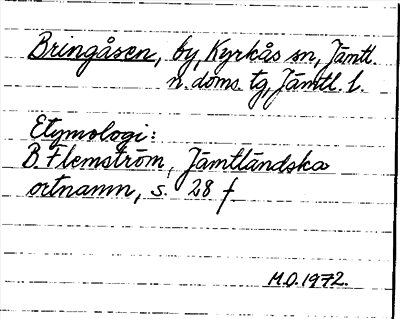 Bringåsen, by, Kyrkås sn, Jämtl.
n. doms. tg, Jämtl. l.
Etymologi:
B. Flemström, Jämtländska
ortnamn, s. 28 f
M.O. 1972.